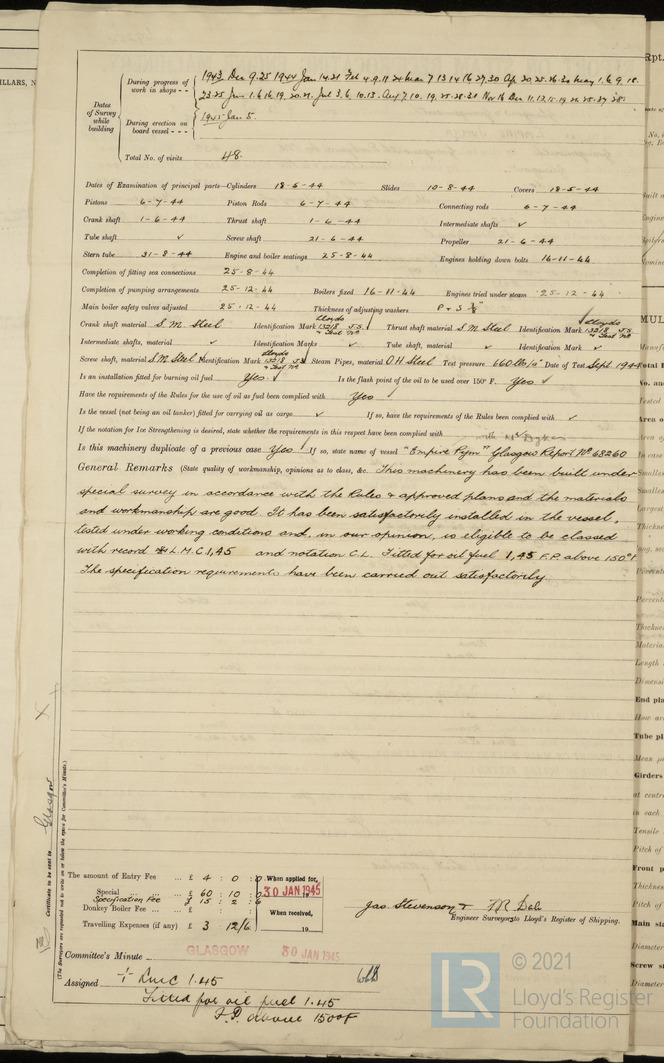 Rpt.
ILLARS, N
Dates of Survey while building
During progress of work in shops - -
1943 Dec 9.25 1944 Jan 14.21 Feb 4.9.11 24 Mar 7 13 14 16 27.30 Ap 20.25.26.30 May 1.6.9.18.
23.25 Jun 1.6.16.19.20.21. Jul 3.6.10.13. Aug 7.10.19.25.28.31 Nov 16 Dec 11.13.15.19.
During erection on board vessel - - -
1945 Jan 5.
Total No. of visits 48.
Dates of Examination of principal parts—Cylinders 18-5-44 Slides 10-8-44 Covers 18-5-44
Pistons 6-7-44 Piston Rods 6-7-44 Connecting rods 6-7-44
Crank shaft 1-6-44 Thrust shaft 1-6-44 Intermediate shafts ✓
Tube shaft ✓ Screw shaft 21-6-44 Propeller 21-6-44
Stern tube 31-8-44 Engine and boiler seatings 25-8-44 Engines holding down bolts 16-11-44
Completion of fitting sea connections 25-8-44
Completion of pumping arrangements 25-12-44 Boilers fixed 16-11-44 Engines tried under steam 25-12-44
Main boiler safety valves adjusted 25-12-44 Thickness of adjusting washers P & S
Crank shaft material S.M. Steel Identification Mark Lloyds 13218 J.S. Thrust shaft material S M Steel Identification Mark Lloyds 13218 J.S.
Intermediate shafts, material ✓ Identification Marks ✓ Tube shaft, material ✓ Identification Mark ✓
Screw shaft, material S.M. Steel Identification Mark Lloyds 13218 J.S. Steam Pipes, material O.H Steel Test pressure 660 lbs/□" Date of Test Sept 1944
Is an installation fitted for burning oil fuel Yes ✓ Is the flash point of the oil to be used over 150° F. Yes ✓
Have the requirements of the Rules for the use of oil as fuel been complied with Yes ✓
Is the vessel (not being an oil tanker) fitted for carrying oil as cargo ✓ If so, have the requirements of the Rules been complied with ✓
If the notation for Ice Strengthening is desired, state whether the requirements in this respect have been complied with
Is this machinery duplicate of a previous case Yes ✓ If so, state name of vessel "Empire Pym" Glasgow Report No 68260
General Remarks (State quality of workmanship, opinions as to class, &c. This machinery has been built under
special survey in accordance with the Rules & approved plans and the materials
and workmanship are good. It has been satisfactorily installed in the vessel,
tested under working conditions and, in our opinion, is eligible to be classed
with record ✠ L.M.C. 1,45 and notation C.L. Fitted for oil fuel 1,45 F.P. above 150°F.
The specification requirements have been carried out satisfactorily.
Certificate to be sent to Glasgow
(The Surveyors are requested not to write on or below the space for Committee's Minute.)
The amount of Entry Fee ... £ 4 : 0 : 0 When applied for,
Special ... ... £ 60 : 10 : 0 30 JAN 1945
Specification Fee £ 15 : 2 : 6
Donkey Boiler Fee ... £ : : When received,
Travelling Expenses (if any) £ 3 12/6 19
Jas. Stevenson & T.R. Dale
Engineer Surveyors to Lloyd's Register of Shipping.
Committee's Minute GLASGOW 30 JAN 1945
Assigned + LMC 1.45
Fitted for oil fuel 1.45
F.P. above 150°F
LR
© 2021
Lloyd's Register
Foundation